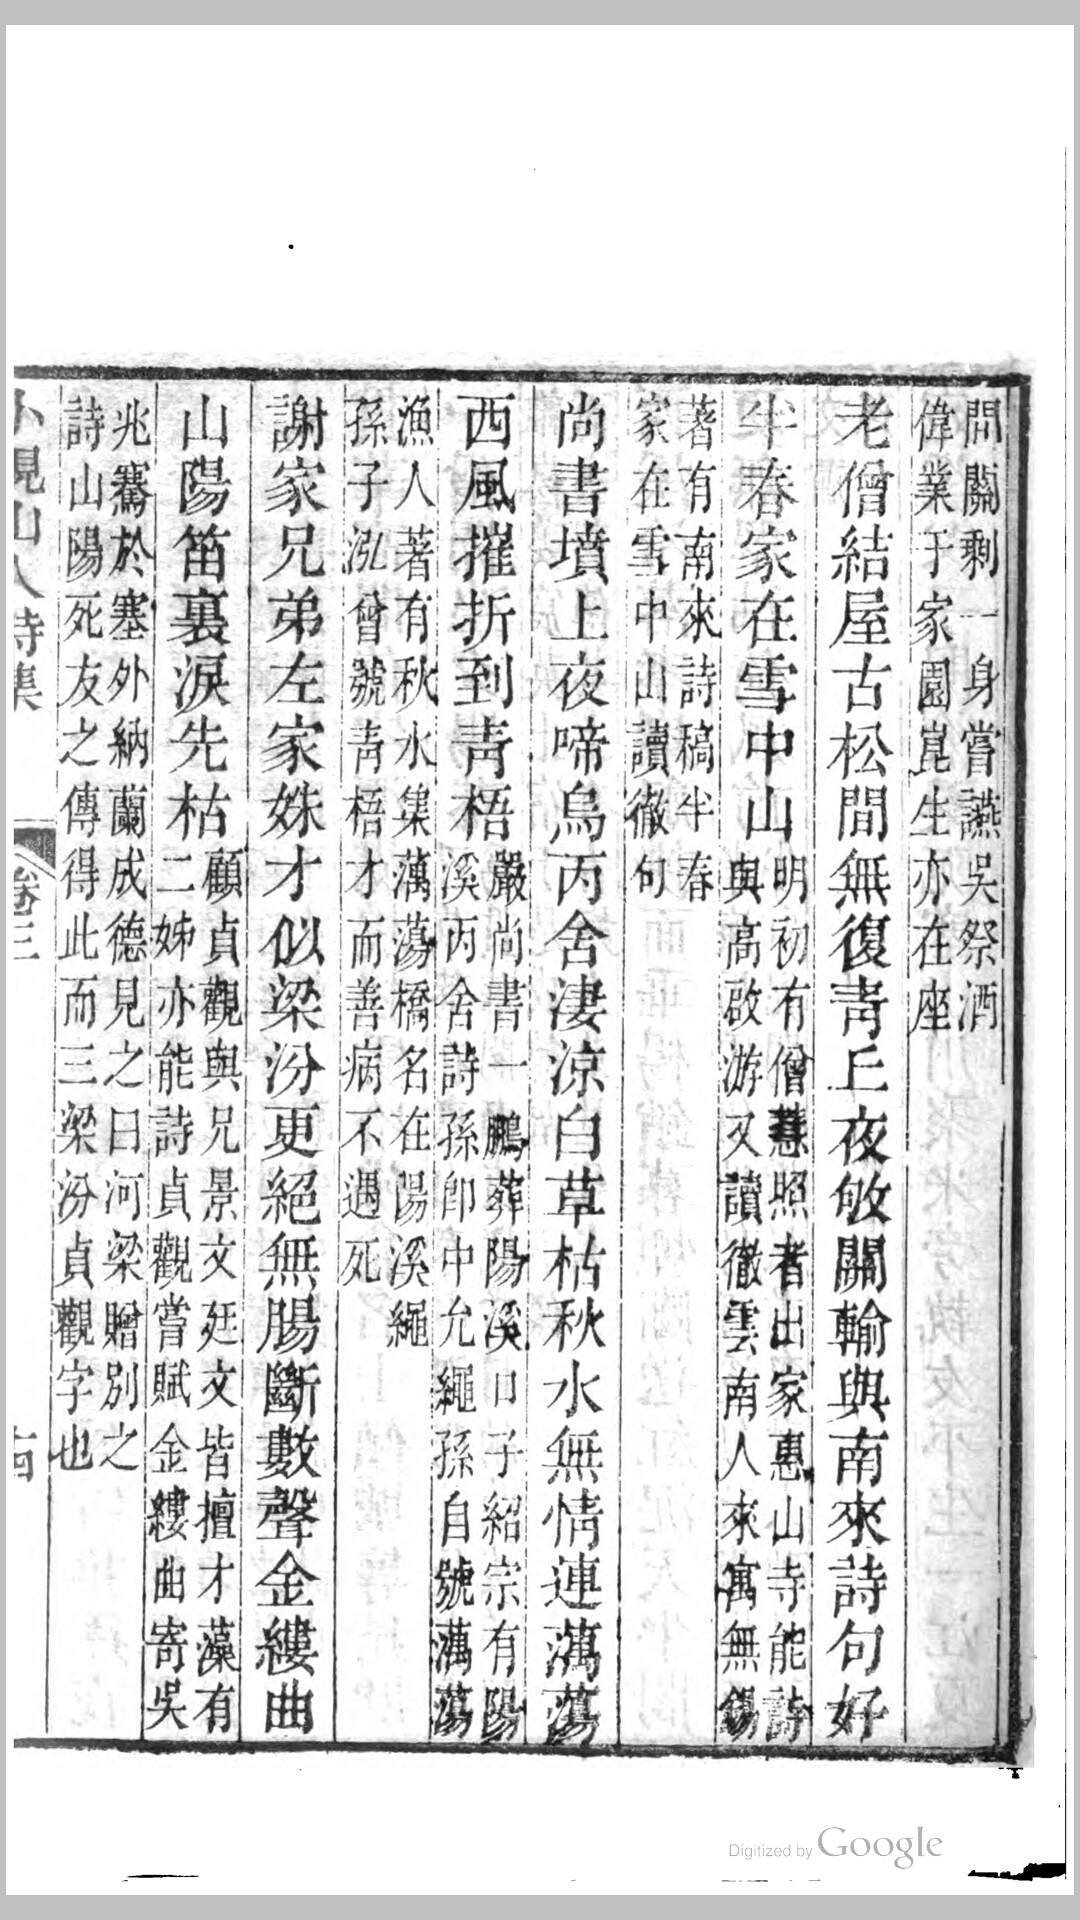 間關剩一身嘗讌吳祭酒
偉業于家園崑生亦在座
老僧結屋古松間無復靑丘夜敂關輸與南來詩句好
半春家在雪中山明初有僧慧照者出家惠山寺能詩
與高啟游又讀徹雲南人來寓無錫
著有南來詩稿半春
家在雪中山讀徹句
尚書墳上夜啼烏丙舍淒涼白草枯秋水無情連蕅蕩
西風摧折到靑梧嚴尚書一鵬葬陽溪口子紹宗有陽
溪丙舍詩孫卽中允繩孫自號蕅蕩
漁人著有秋水集蕅蕩橋名在陽溪繩
孫子泓曾號靑梧才而善病不遇死
謝家兄弟左家姝才似梁汾更絕無腸斷數聲金縷曲
山陽笛裏淚先枯顧貞觀與兄景文廷文皆擅才藻有
二姊亦能詩貞觀嘗賦金縷曲寄吳
兆騫於塞外納蘭成德見之曰河梁贈別之
詩山陽死友之傳得此而三梁汾貞觀字也
小峴山人詩集
卷三
Digitized by Google